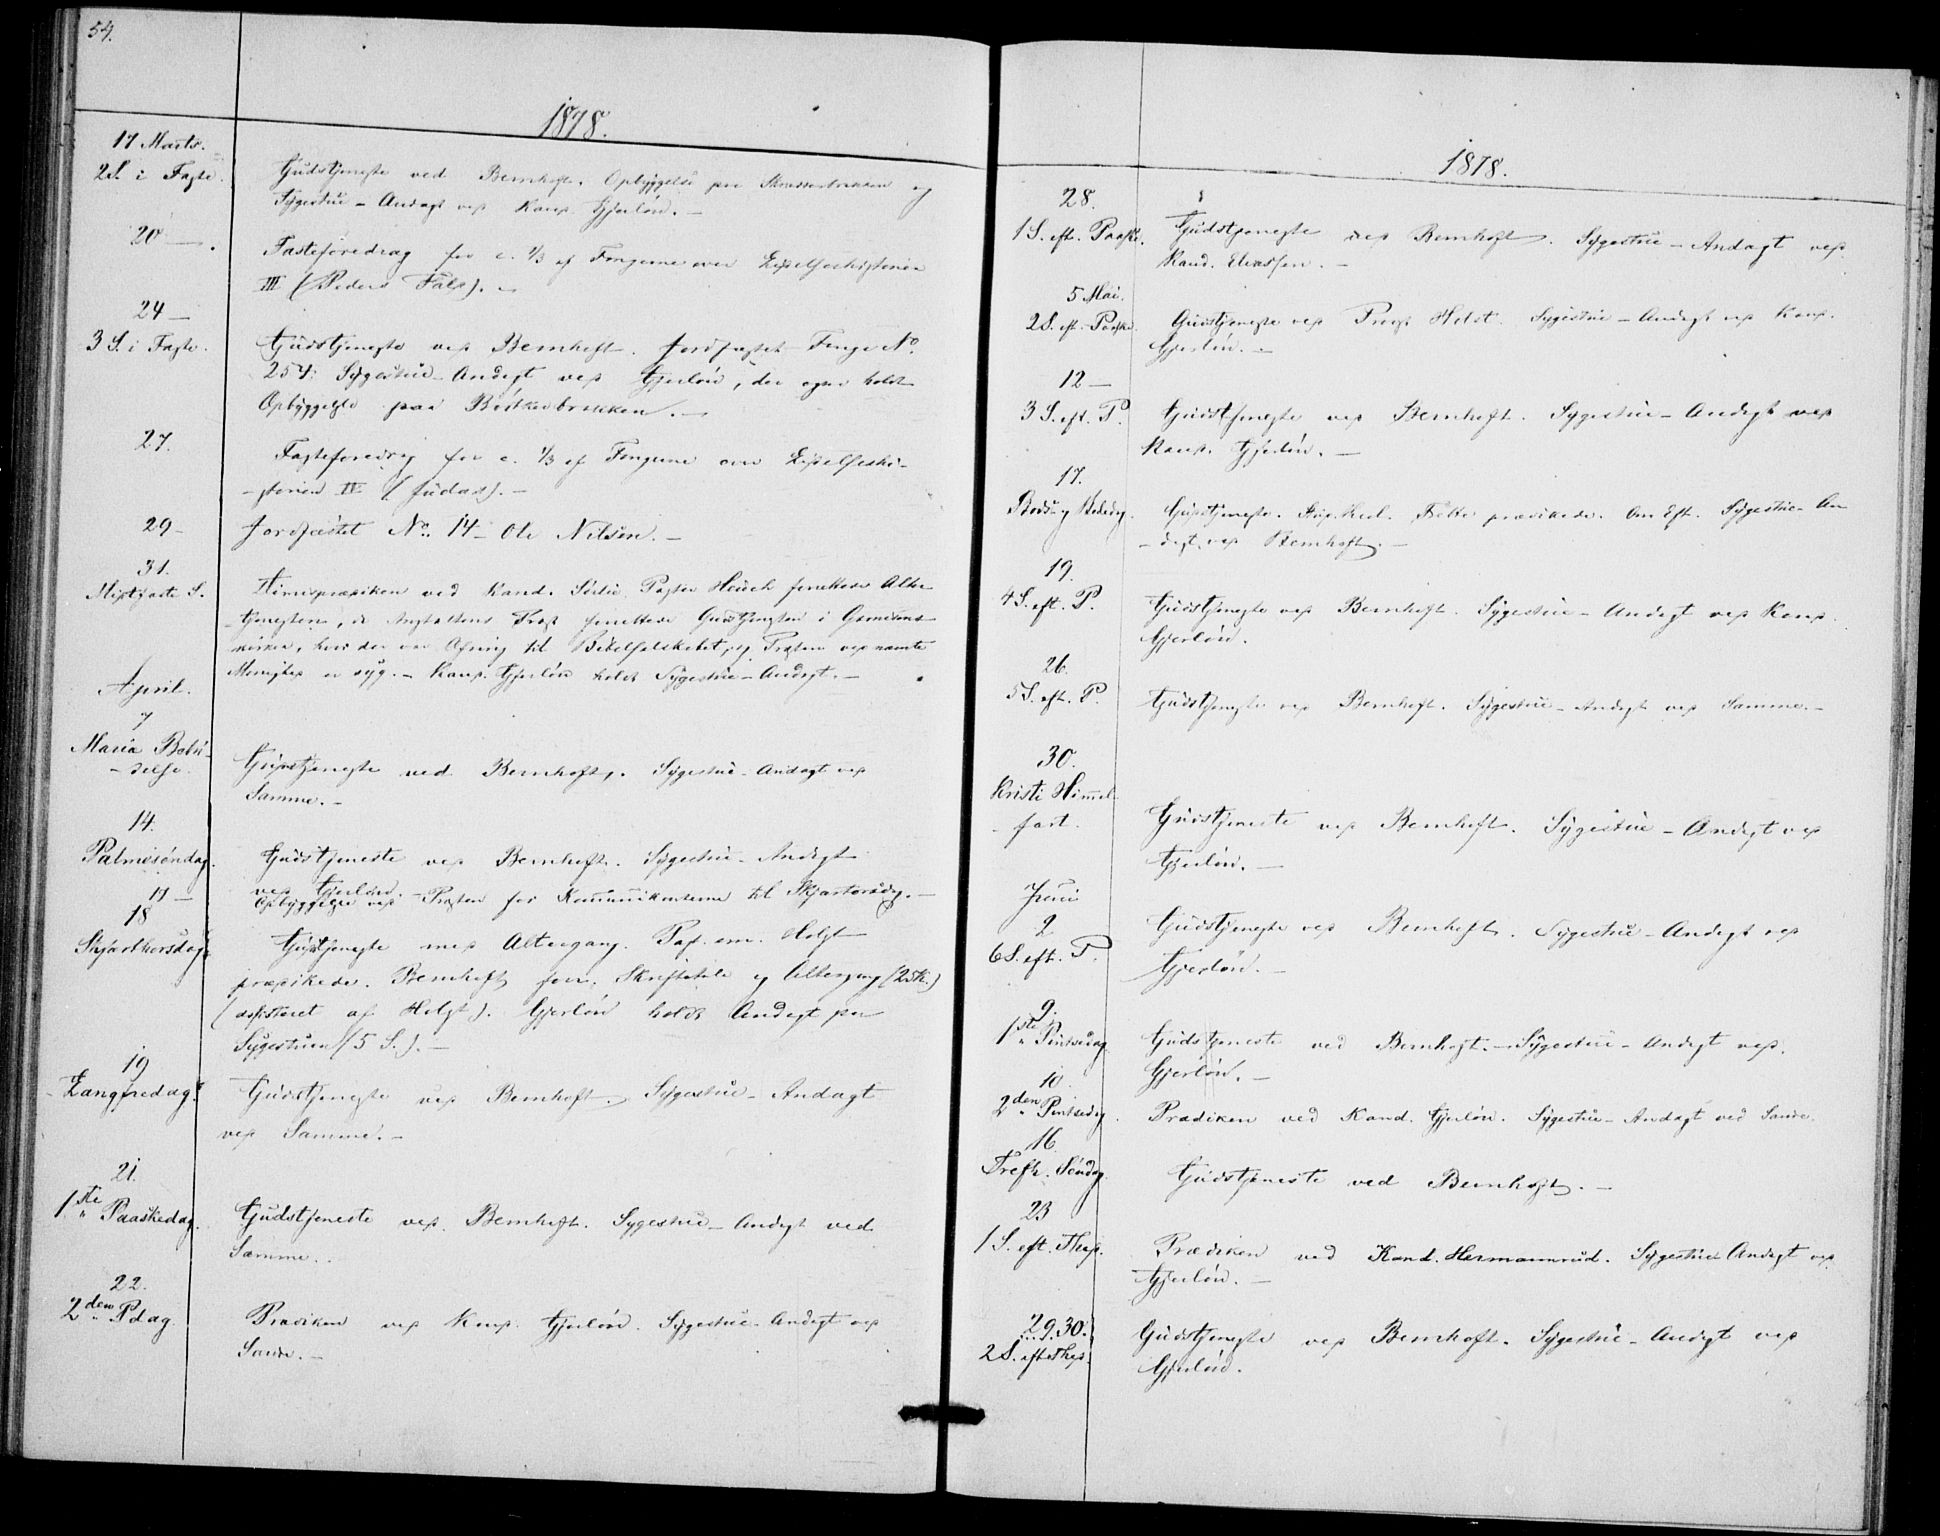 54.
1878.
17 Marts.
2 S. i Faste. Gudstjeneste ved Bernhoft. Opbyggelse paa og
Sygestue-Andagt ved Kand. Gjerløw. –
20 –. Fasteforedrag for c. 1/3 af Fangerne over Lidelseshistorien
III (Peders Fald). –
24 –
3 S. i Faste. Gudstjeneste ved Bernhoft. Jordfæstet Fange No.
254. Sygestue-Andagt ved Gjerløw, der ogsaa holdt
Opbyggelse paa Bödkerbrakken. –
27. Fasteforedrag for c. 1/3 af Fangerne over Lidelseshi-
-storien IV (Judas). –
29 – Jordfæstet No. 14 – Ole Nilsen. –
31.
Midfaste S. ved Kand. Pastor Heuch forrettede Alter-
tjenesten, da Anstaltens Præst forrettede Gudstjenesten i Garnisons-
kirken, hvor der var Ofring til Bibelselskabet, og Præsten ved nævnte
Menighed er syg. – Kand. Gjerløw holdt Sygestue-Andagt. –
April.
7
Maria Bebu-
-delse. Gudstjeneste ved Bernhoft. Sygestue-Andagt ved
Samme. –
14.
Palmesöndag. Gudstjeneste ved Bernhoft. Sygestue-Andagt
ved Gjerløw. –
17 – Opbyggelse ved Præsten for Kommunikanterne til Skjærtorsdag. –
18
Skjærthorsdag. Gudstjeneste med Altergang. Past. em. Holst
prædikede. Bernhoft forr. Skriftetale og Altergang (25 K.)
(assisteret af Holst). Gjerløw holdt Andagt paa
Sygestuen (5 S.). –
19
Langfredag. Gudstjeneste ved Bernhoft. Sygestue-Andagt
ved Samme. –
21.
1ste Paaskedag. Gudstjeneste ved Bernhoft. Sygestue-Andagt ved
Samme.
22.
2den Pdag. Prædiken ved Kand. Gjerløw. Sygestue-Andagt ved
Samme. –
1878.
28.
1 S. eft. Paaske. Gudstjeneste ved Bernhoft. Sygestue-Andagt ved
Kand. Eliassen. –
5 Mai.
2 S. eft. Paaske. Gudstjeneste ved Præst Holst. Sygestue-Andagt ved Kand.
Gjerløw. –
12 –
3 S. eft. P. Gudstjeneste ved Bernhoft. Sygestue-Andagt ved
Kand. Gjerløw. –
17.
Bods og Bededag. Gudstjeneste. prædikede. Om Eft. Sygestue-An-
-dagt ved Bernhoft. –
19.
4 S. eft. P. Gudstjeneste ved Bernhoft. Sygestue-Andagt ved Kand.
Gjerløw.
26.
5 S. eft. P. Gudstjeneste ved Bernhoft. Sygestue-Andagt ved Samme. –
30.
Kristi Himmel-
-fart. Gudstjeneste ved Bernhoft. Sygestue-Andagt ved
Gjerløw. –
Juni
2
6 S. eft. P. Gudstjeneste ved Bernhoft. Sygestue-Andagt ved
Gjerløw. –
9.
1ste Pintsedag Gudstjeneste ved Bernhoft. – Sygestue-Andagt ved
Gjerløw. –
10.
2den Pintsedag. Prædiken ved Kand. Gjerløw. Sygestue-Andagt ved Samme.
16.
Trefh. Söndag. Gudstjeneste ved Bernhoft. –
23
1 S. eft. Thef. Prædiken ved Kand. Hermanrud. Sygestue Andagt ved
Gjerløw. –
29. 30.
2 S. eft. Thef. Gudstjeneste ved Bernhoft. Sygestue-Andagt ved
Gjerløw.